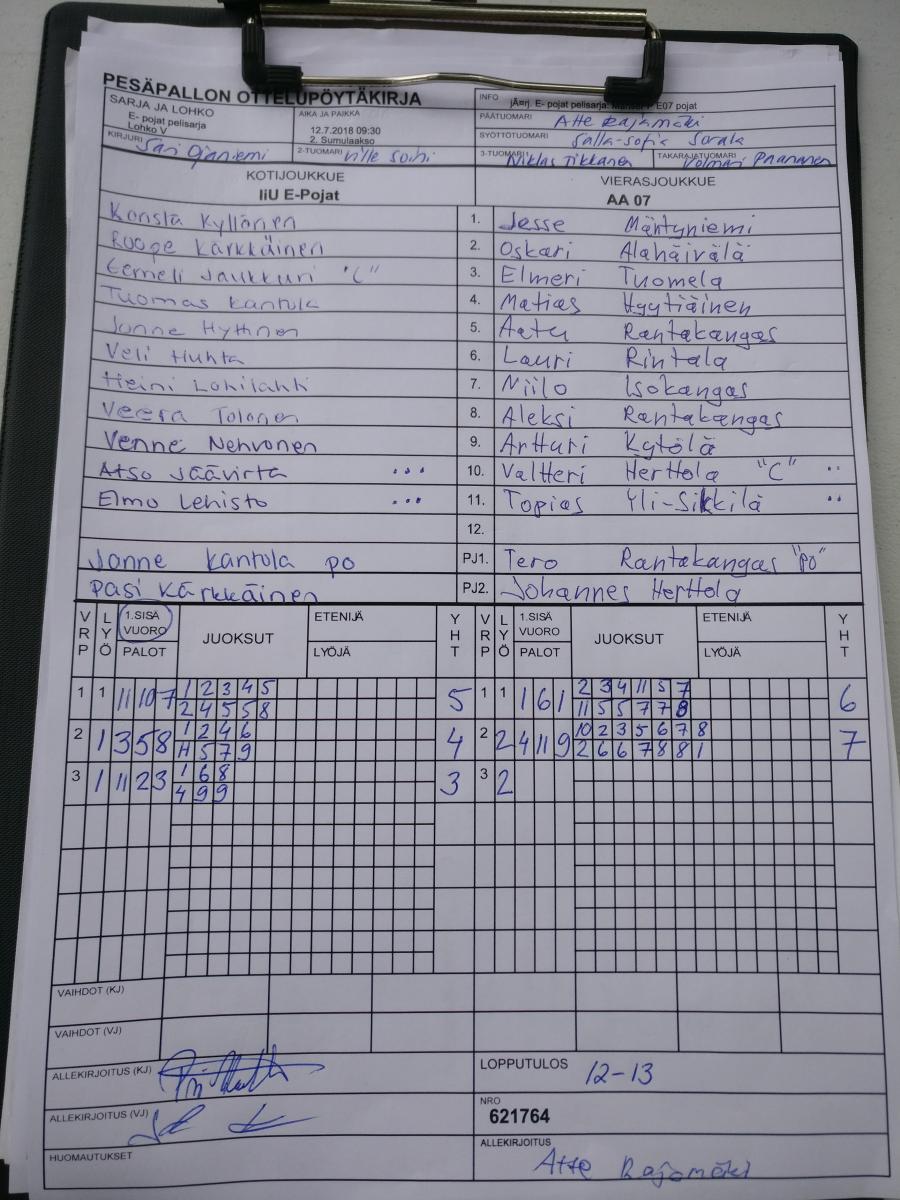 PESÄPALLON OTTELUPÖYTÄKIRJA
SARJA JA LOHKO
E- pojat pelisarja
Lohko V
AIKA JA PAIKKA
12.7.2018 09:30
2. Sumulaakso
INFO
jÄ¤rj. E- pojat pelisarja: E07 pojat
PÄÄTUOMARI Atte Rajamäki
SYÖTTÖTUOMARI Salla-Sofia Sorala
KIRJURI Sari Ojaniemi
2-TUOMARI Ville Soini
3-TUOMARI Niklas Tikkanen
TAKARAJATUOMARI Volmari Paananen
KOTIJOUKKUE
IiU E-Pojat
VIERASJOUKKUE
AA 07
Konsta Kyllönen 1. Jesse Mäntyniemi
Roope Kärkkäinen 2. Oskari Alahäivälä
Eemeli Jaukkuri "C" 3. Elmeri Tuomela
Tuomas Kantola 4. Matias Hyytiäinen
Janne Hyttinen 5. Aatu Rantakangas
Veli Huhta 6. Lauri Rintala
Heini Lohilahti 7. Niilo Isokangas
Veera Tolonen 8. Aleksi Rantakangas
Venne Nenvonen 9. Artturi Kytölä
Atso Jäävirta ... 10. Valtteri Herttola "C" ..
Elmo Lehisto ... 11. Topias Yli-Sikkilä ..
12.
Janne Kantola po PJ1. Tero Rantakangas "po"
Pasi Kärkkäinen PJ2. Johannes Herttola
VRP LYÖ 1.SISÄ VUORO PALOT JUOKSUT ETENIJÄ LYÖJÄ YHT VRP LYÖ 1.SISÄ VUORO PALOT JUOKSUT ETENIJÄ LYÖJÄ YHT
1 1 11 10 7 1 2 3 4 5 5 1 1 1 6 1 2 3 4 11 5 7 6
2 4 5 5 8 11 5 5 7 7 8
2 1 3 5 8 1 2 4 6 4 2 2 4 11 9 10 2 3 5 6 7 8 7
11 5 7 9 2 6 6 7 8 8 1
3 1 11 2 3 1 6 8 3 3 2
4 9 9
VAIHDOT (KJ)
VAIHDOT (VJ)
ALLEKIRJOITUS (KJ)
LOPPUTULOS 12-13
ALLEKIRJOITUS (VJ)
NRO
621764
HUOMAUTUKSET
ALLEKIRJOITUS
Atte Rajamäki